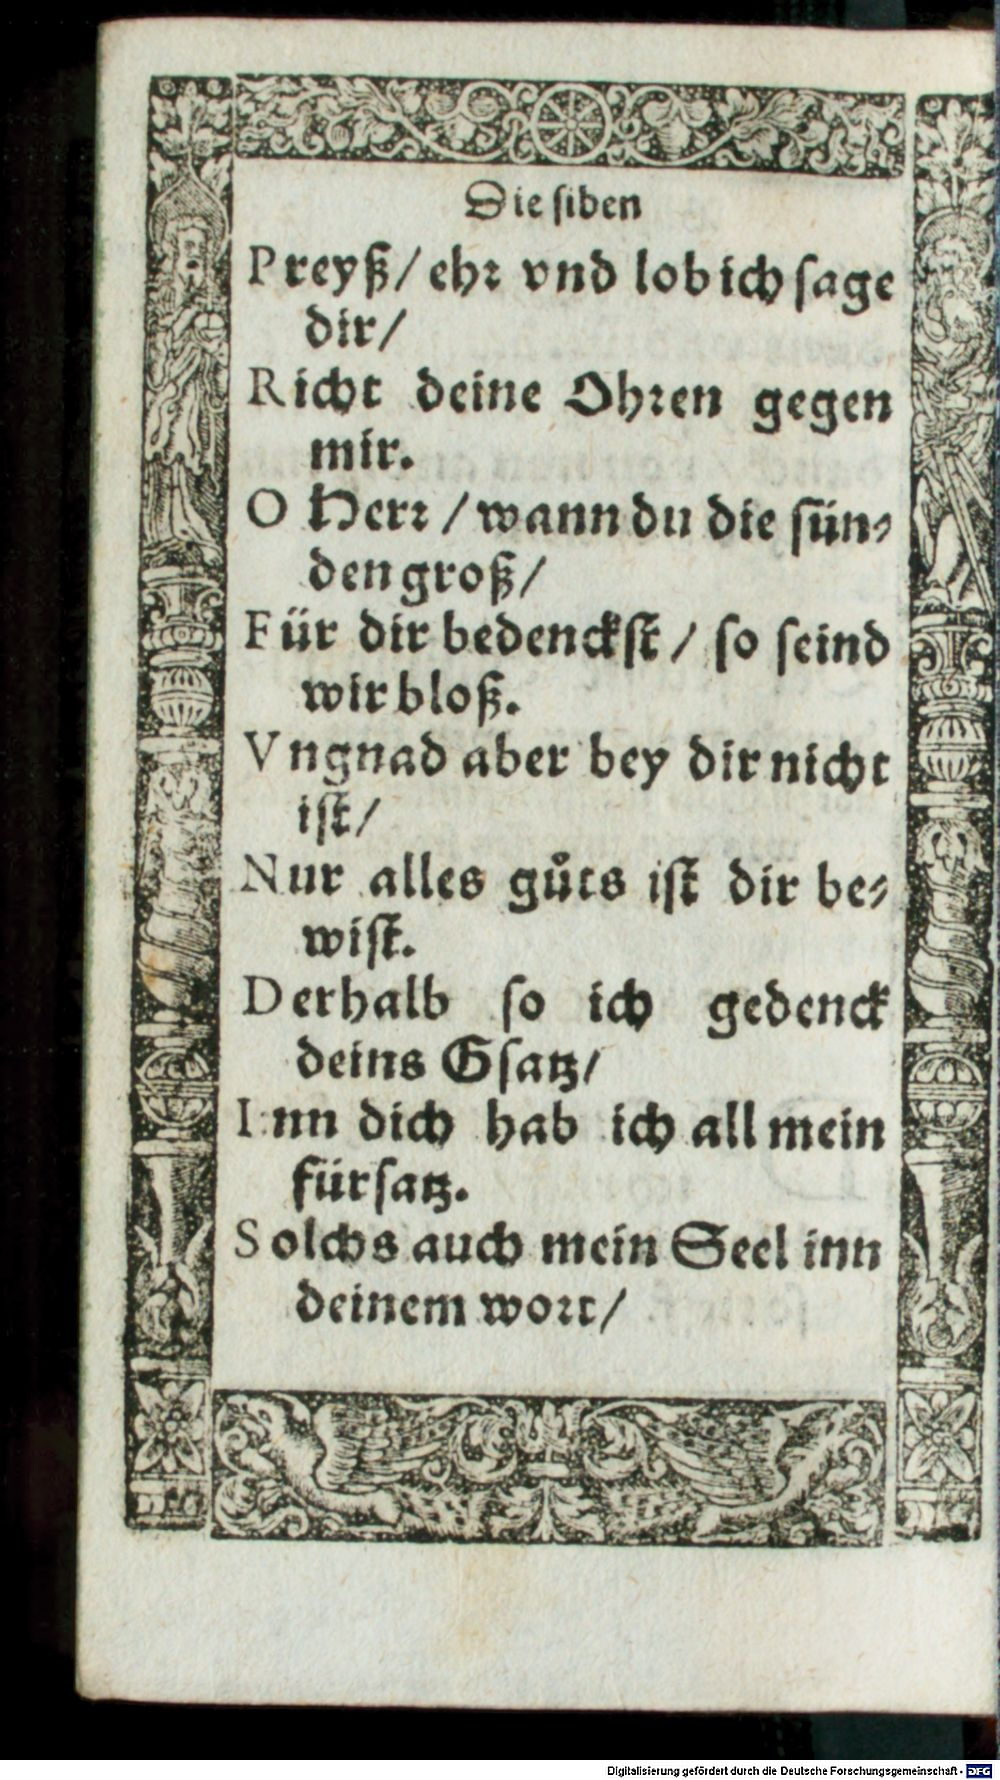 Die siben
Preyß/ ehr vnd lob ich sage
dir/
Richt deine Ohren gegen
mir.
O Herr / wann du die sün-
den groß/
Für dir bedenckst / so seind
wir bloß.
Vngnad aber bey dir nicht
ist/
Nur alles gůts ist dir be-
wist.
Derhalb so ich gedenck
deins Gsatz/
Inn dich hab ich all mein
fürsatz.
Solchs auch mein Seel inn
deinem wort/
Digitalisierung gefördert durch die Deutsche Forschungsgemeinschaft - DFG